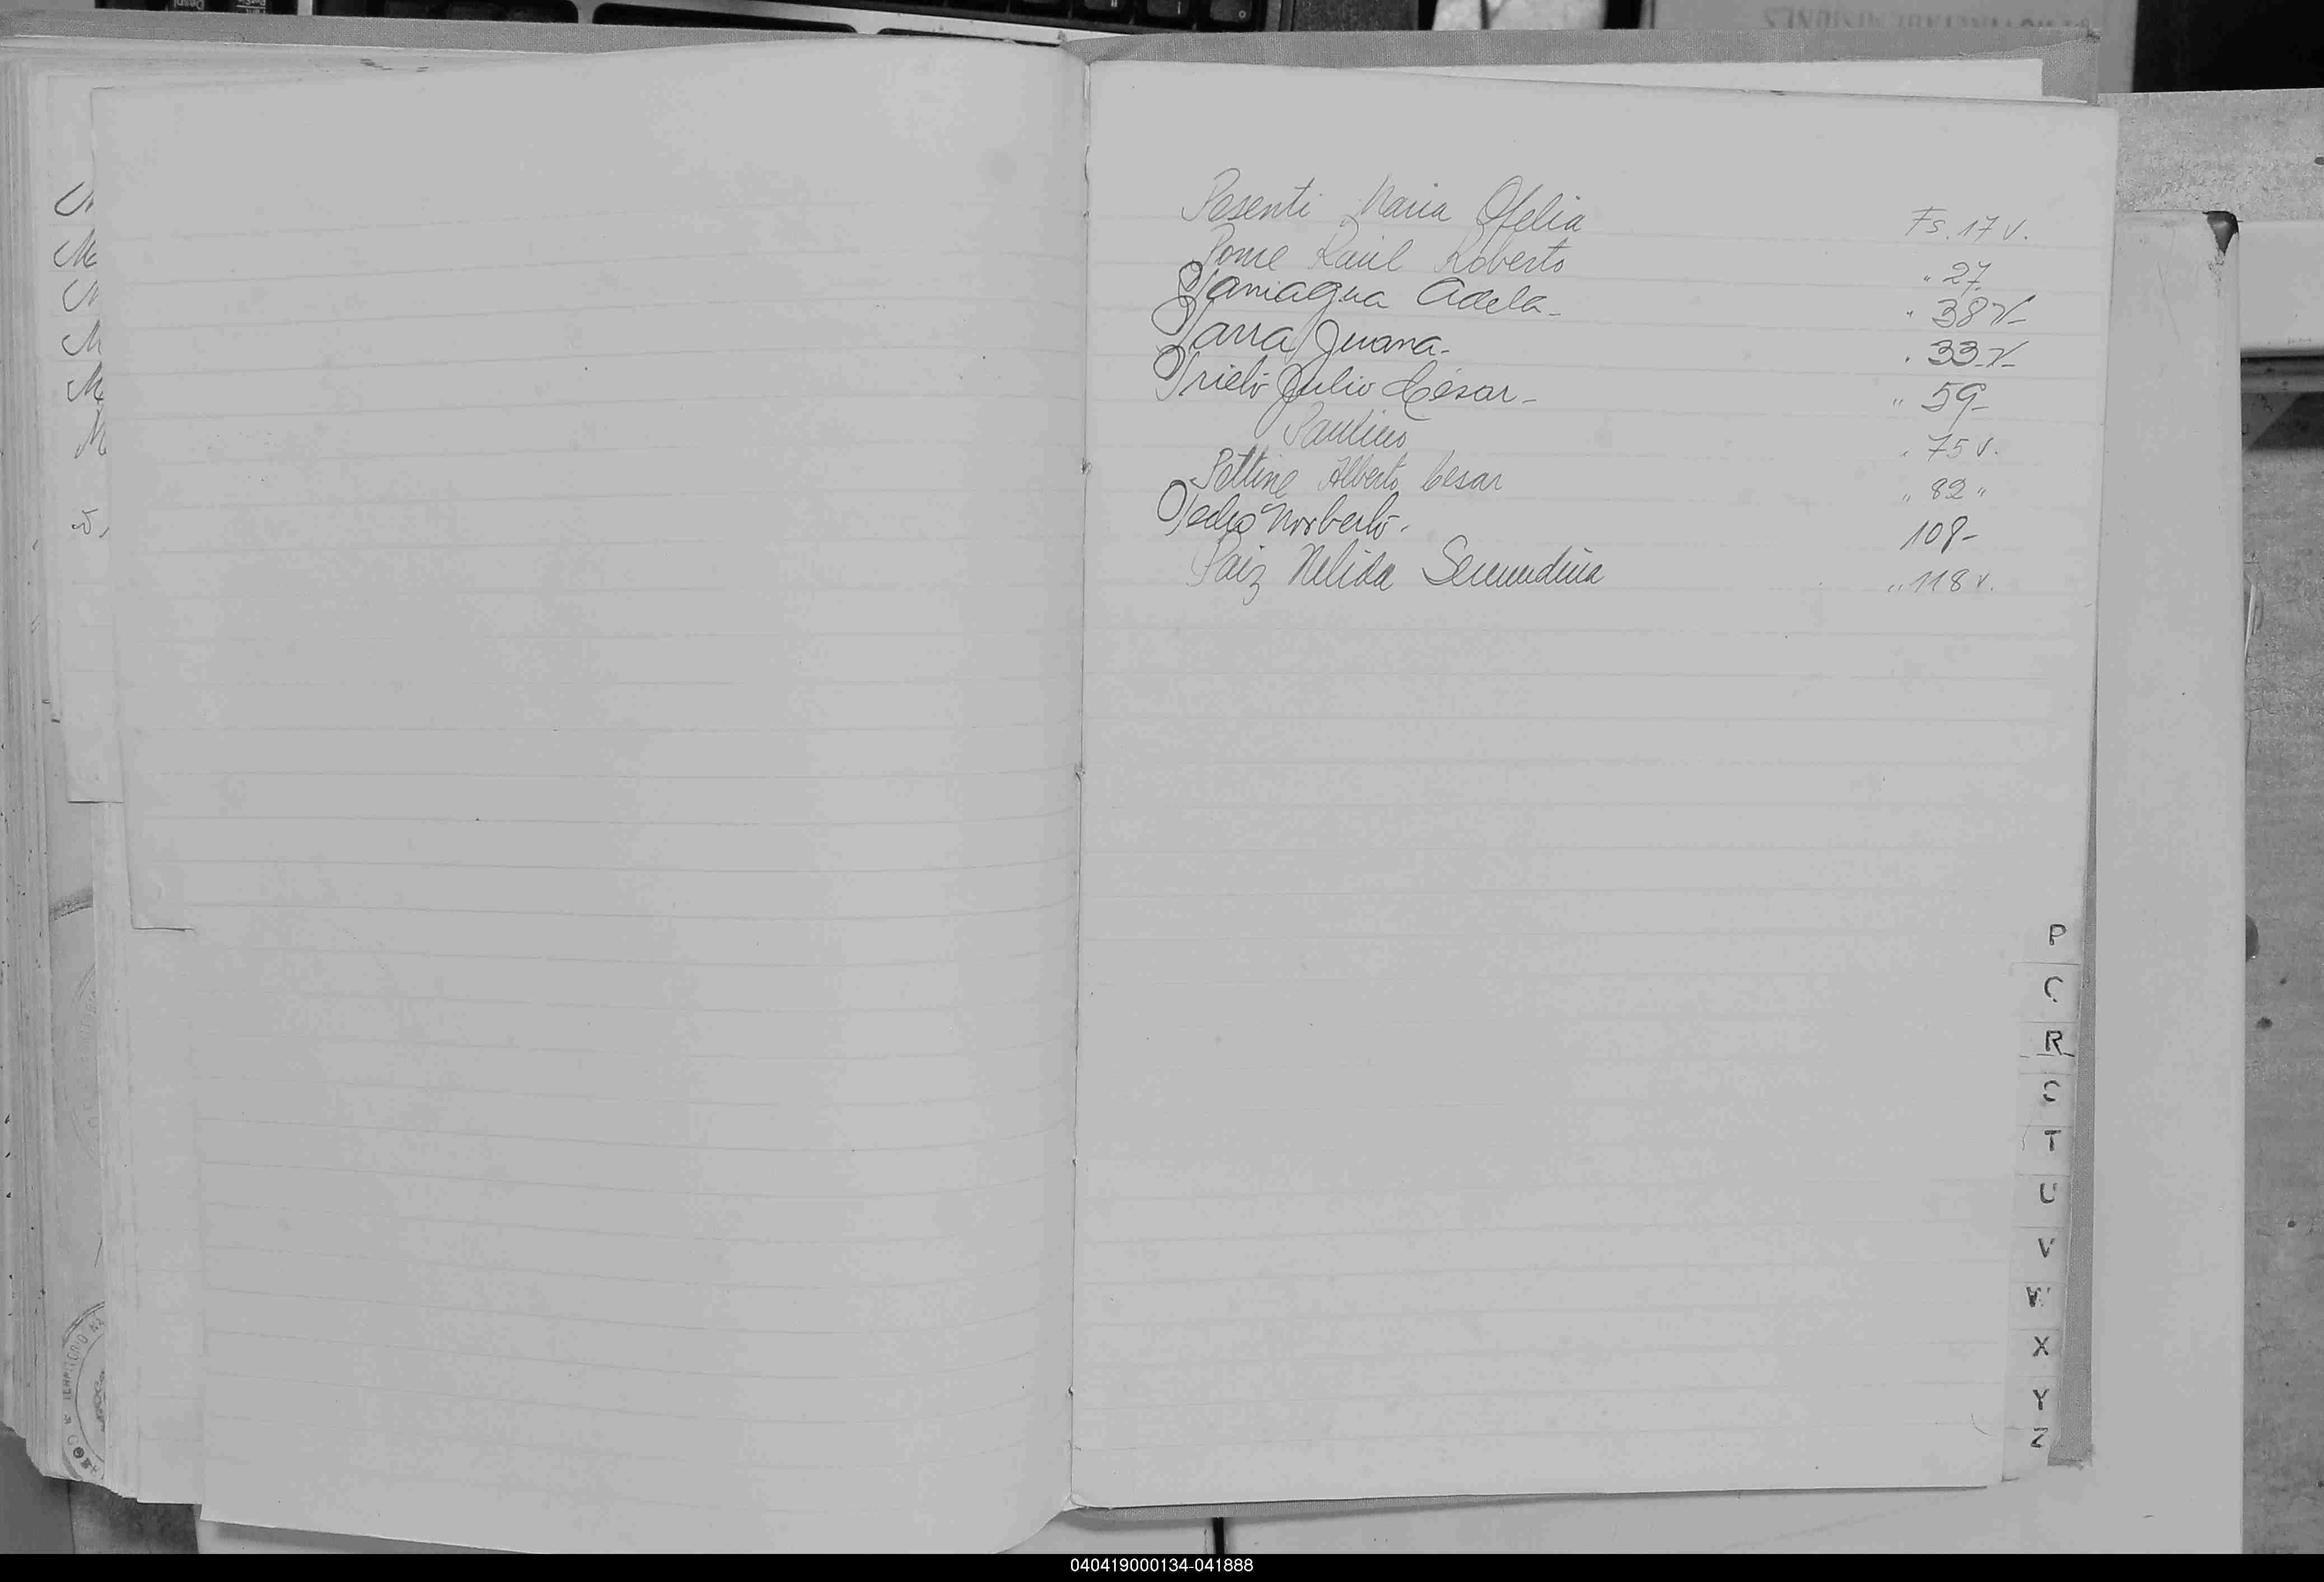 Pesenti Maria Ofelia Fs. 17 v.
Pome Raúl Roberto " 27
Paniagua Adela - " 38 v-
Parra Juana - " 33 v-
Prieto Julio César - " 59 -
Paulino " 75 v.
Pettine Alberto Cesar " 82 "
Pedro Norberto. 108 -
Paiz Nelida Secundina " 118 v.
P
C
R
S
T
U
V
W
X
Y
Z
040419000134-041888